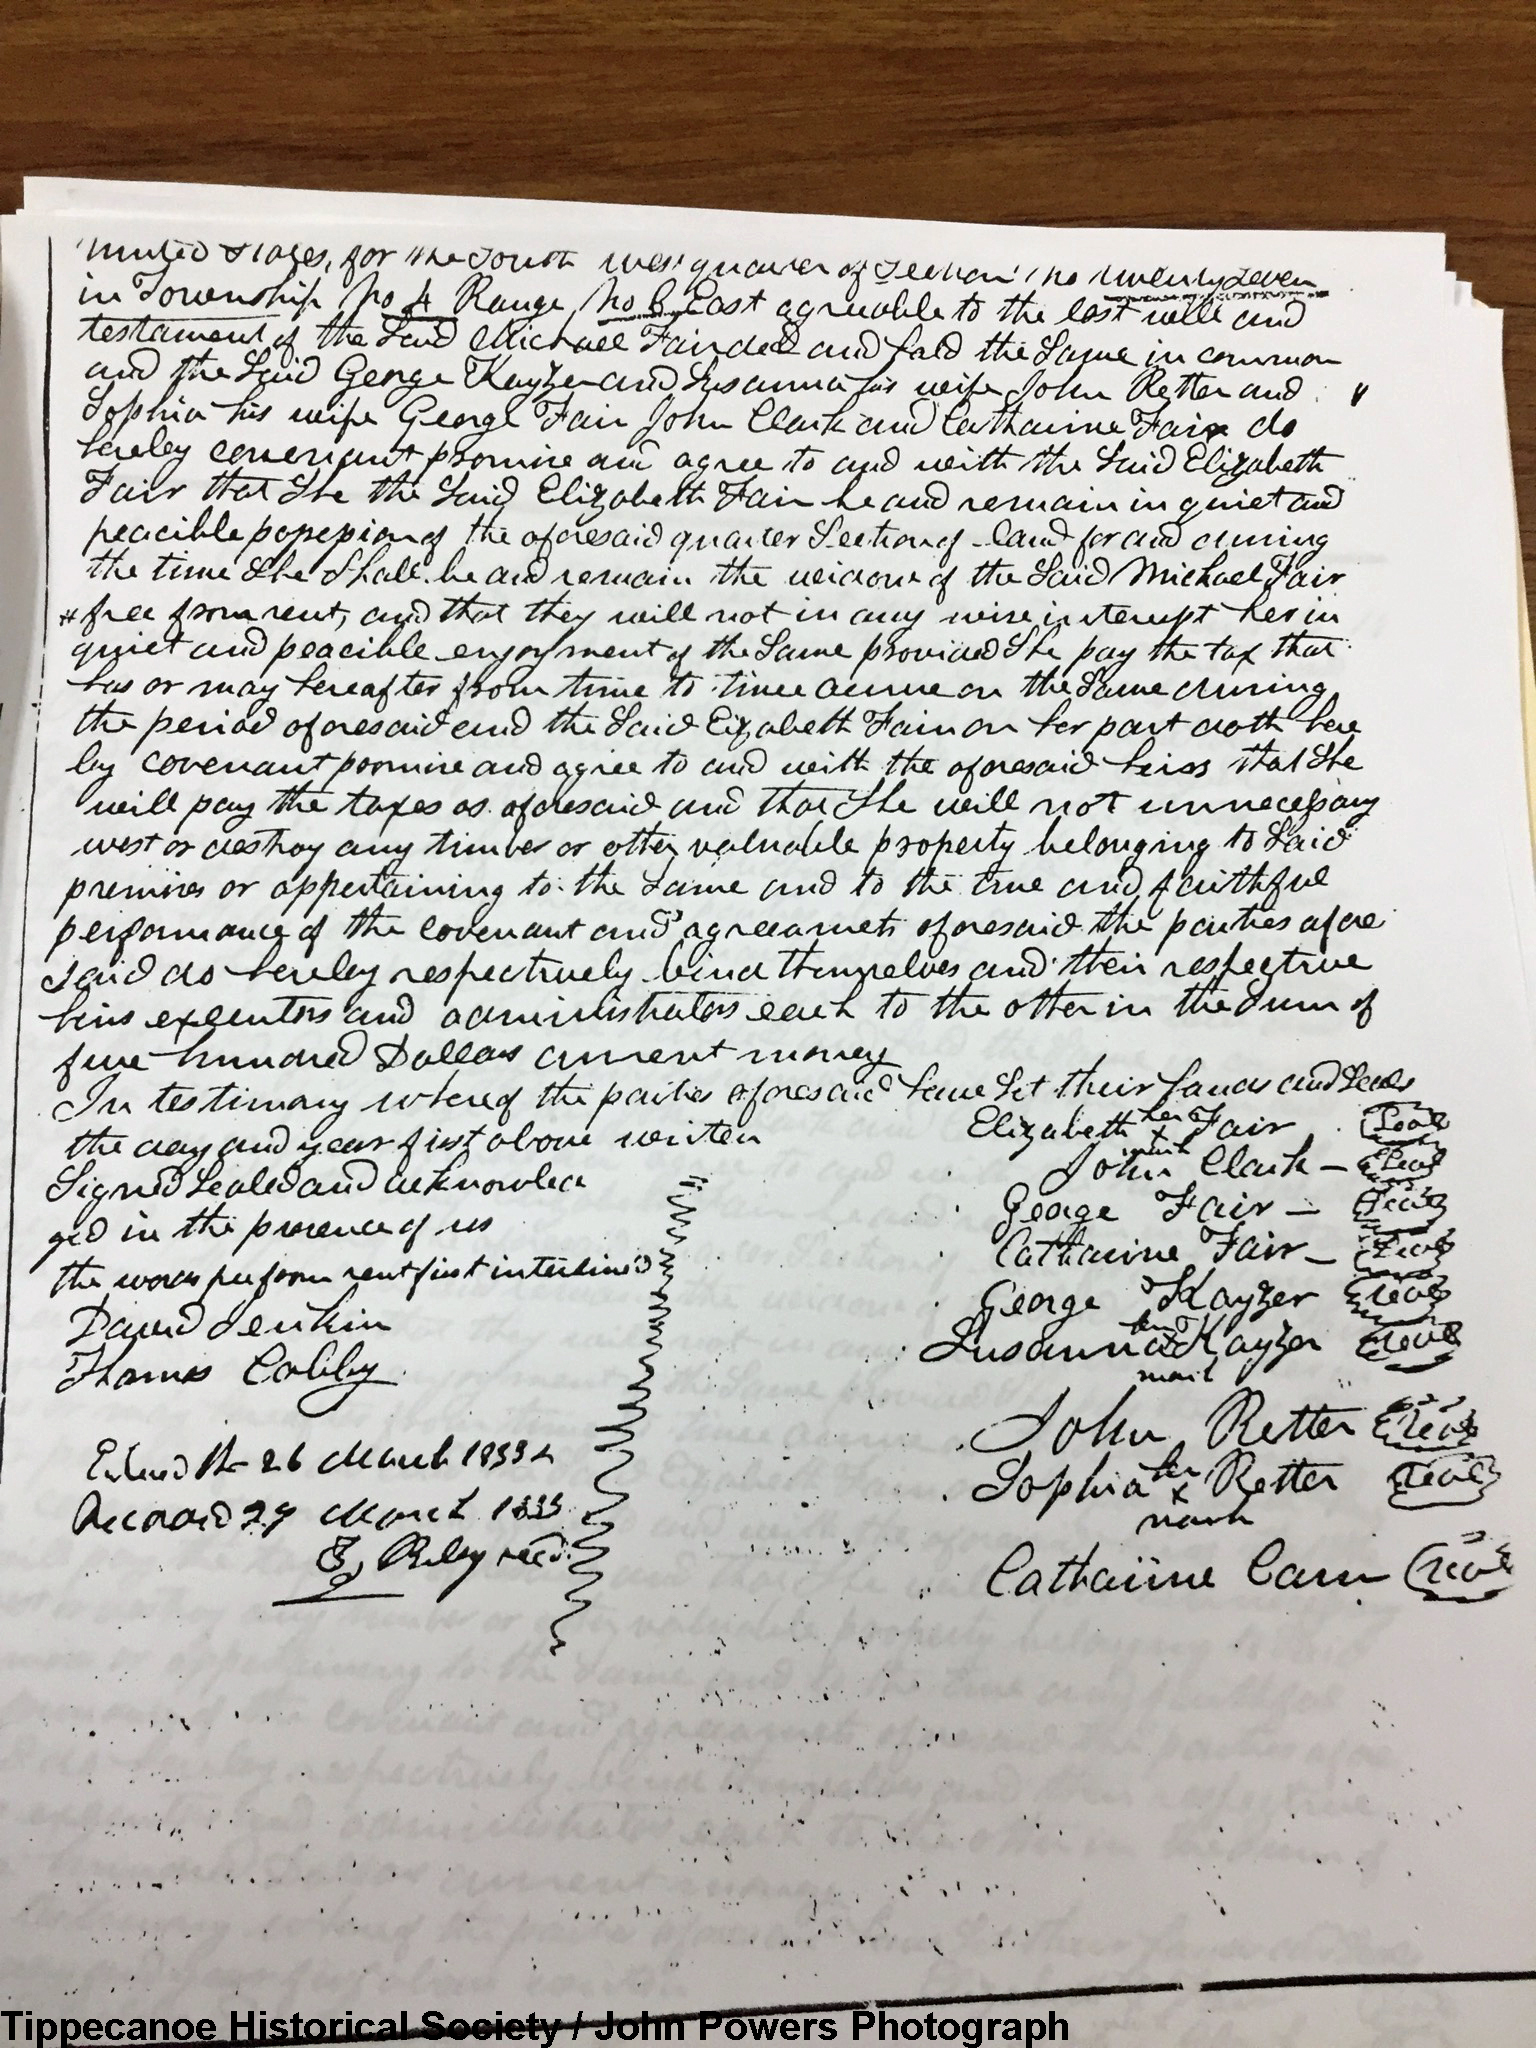 United States, for the South west quarter of Section no twenty seven
in Township No 4 Range No 6 East agreeable to the last will and
testament of the Said Michael Fair decd and hald the Same in common
and the Said George Kayzer and Susanna his wife John Retter and
Sophia his wife George Fair John Clark and Catharine Fair do
hereby covenant promise and agree to and with the Said Elizabeth
Fair that She the Said Elizabeth Fair be and remain in quiet and
peacible possession of the aforesaid quarter Section of land for and during
the time She Shall be and remain the widow of the Said Michael Fair
# free from rent, and that they will not in any wise interrupt her in
quiet and peacible enjoyment of the Same provided She pay the tax that
has or may hereafter from time to time accrue on the Same during
the period aforesaid and the Said Elizabeth Fair on her part doth here
by covenant promise and agree to and with the aforesaid heirs that She
will pay the taxes as aforesaid and that She will not unnecessary
west or destroy any timber or other valuable property belonging to Said
premises or appertaining to the Same and to the true and faithful
performance of the covenant and agreaments aforesaid the parties afore
Said do hereby respectively bind themselves and their respective
heirs executors and administrators each to the other in the Sum of
five hundred Dollars current money
In testimony whereof the parties aforesaid have Set their hands and Seals
the day and year first above written
Signed Sealed and acknowled
ged in the presence of us
the words free from rent first interlined
David Jenkin
Thomas Cobby
Entered the 26 March 1833
Recorded 29 March 1833
Riley recd
Elizabeth her x mark Fair Seal
John Clark – Seal
George Fair – Seal
Catharine Fair – Seal
George Kayzer Seal
Susanna her x mark Kayzer Seal
John Retter Seal
Sophia her x mark Retter Seal
Catharine Seal
Tippecanoe Historical Society / John Powers Photograph